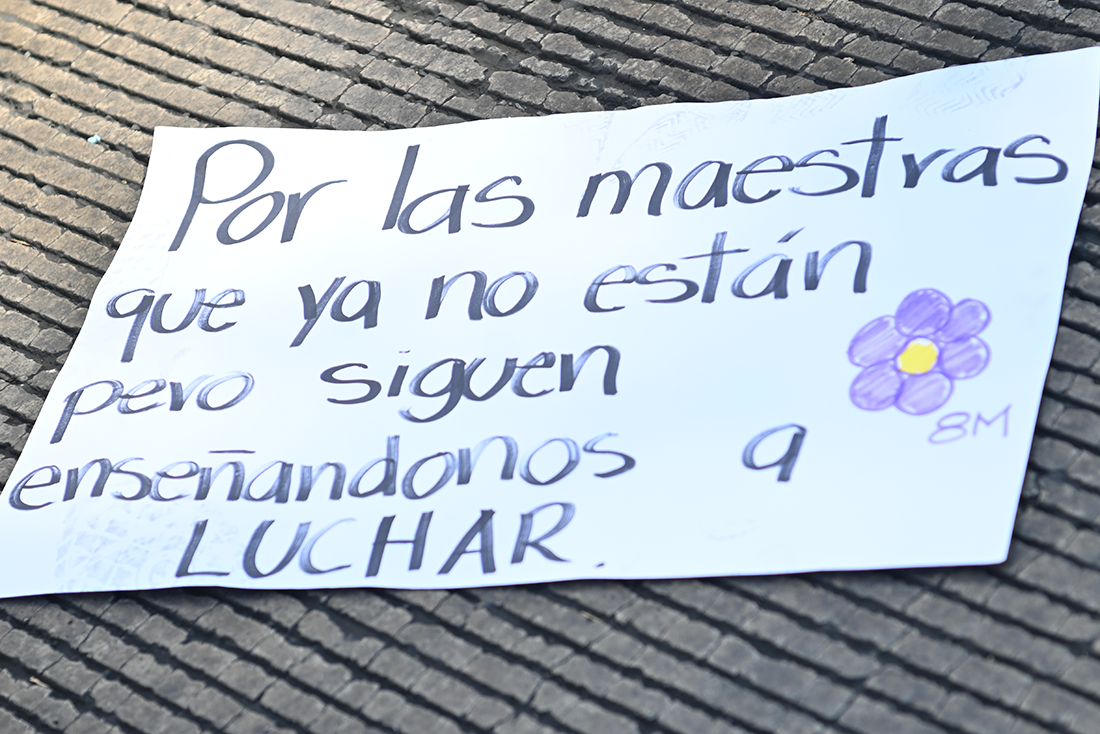 Por las maestras
que ya no están
pero siguen
enseñandonos a
LUCHAR.
8M